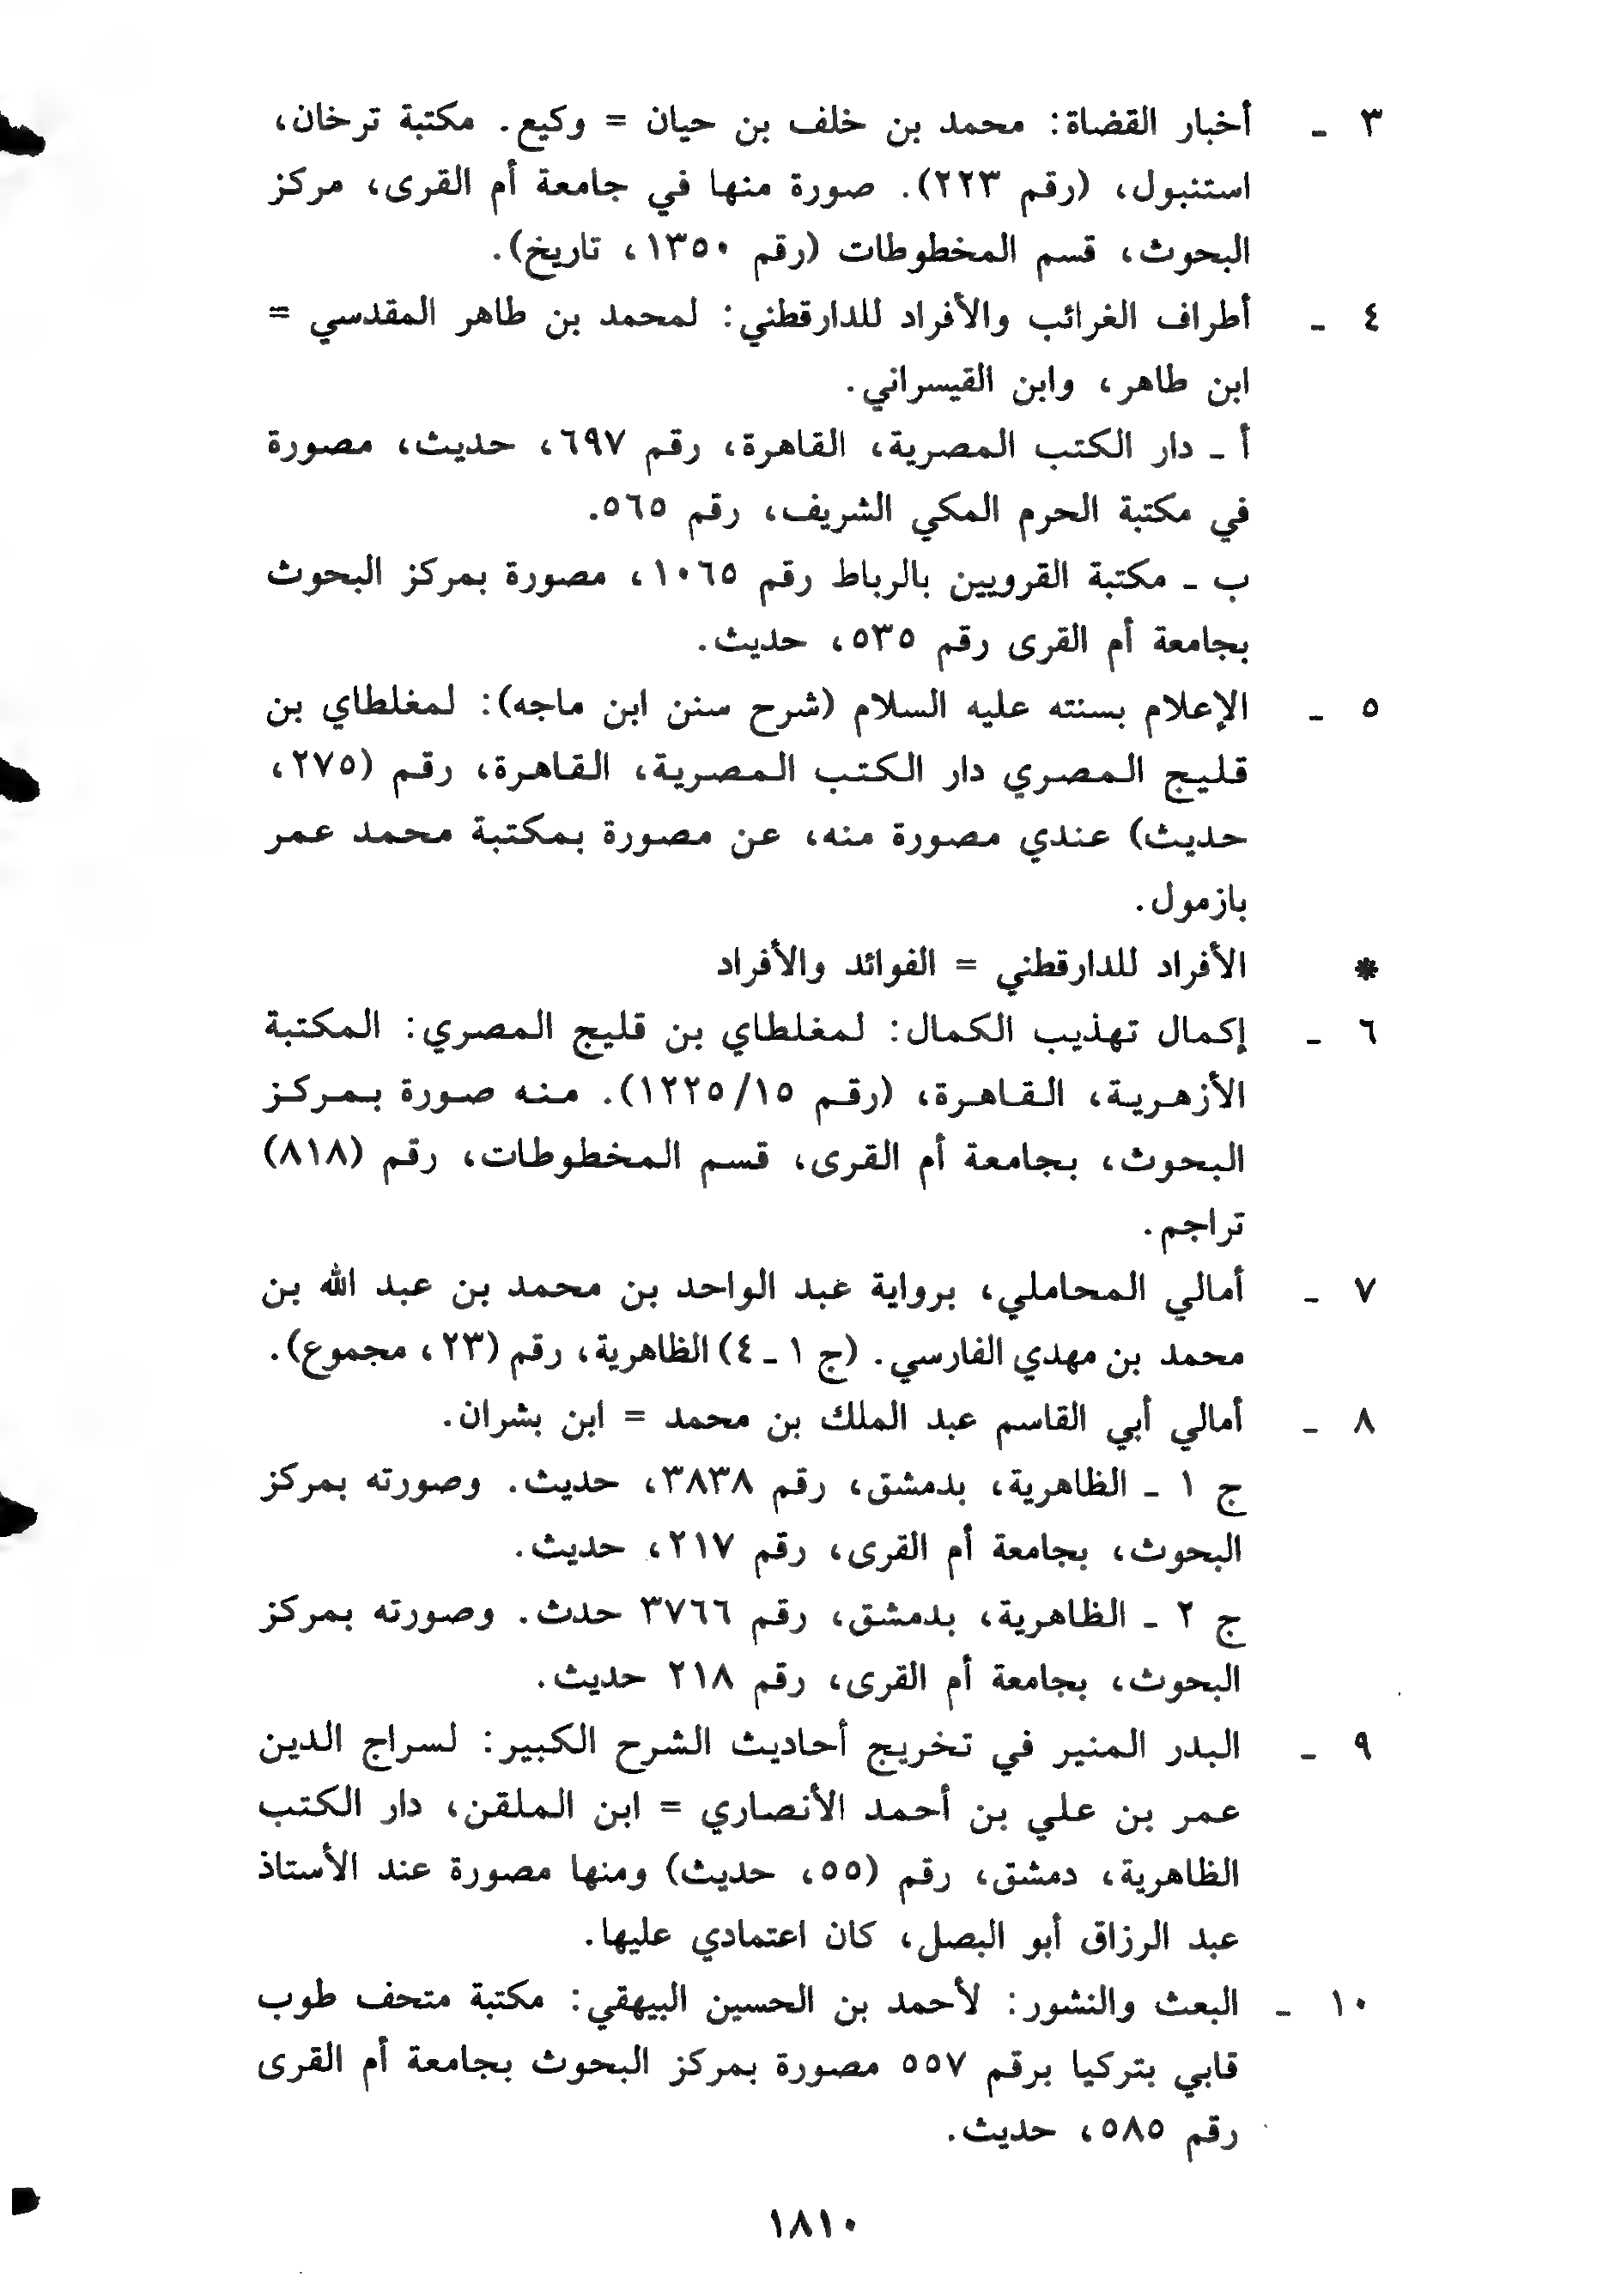 ٣ ـ أخبار القضاة: محمد بن خلف بن حيان = وكيع. مكتبة ترخان،
استنبول، (رقم ٢٢٣). صورة منها في جامعة أم القرى، مركز
البحوث، قسم المخطوطات (رقم ١٣٥٠، تاريخ).
٤ ـ أطراف الغرائب والأفراد للدارقطني: لمحمد بن طاهر المقدسي =
ابن طاهر، وابن القيسراني.
أ ـ دار الكتب المصرية، القاهرة، رقم ٦٩٧، حديث، مصورة
في مكتبة الحرم المكي الشريف، رقم ٥٦٥.
ب ـ مكتبة القرويين بالرباط رقم ١٠٦٥، مصورة بمركز البحوث
بجامعة أم القرى رقم ٥٣٥، حديث.
٥ ـ الإعلام بسنته عليه السلام (شرح سنن ابن ماجه): لمغلطاي بن
قليج المصري دار الكتب المصرية، القاهرة، رقم (٢٧٥،
حديث) عندي مصورة منه، عن مصورة بمكتبة محمد عمر
بازمول.
* الأفراد للدارقطني = الفوائد والأفراد
٦ ـ إكمال تهذيب الكمال: لمغلطاي بن قليج المصري: المكتبة
الأزهرية، القاهرة، (رقم ١٢٢٥/١٥). منه صورة بمركز
البحوث، بجامعة أم القرى، قسم المخطوطات، رقم (٨١٨)
تراجم.
٧ ـ أمالي المحاملي، برواية عبد الواحد بن محمد بن عبد الله بن
محمد بن مهدي الفارسي. (ج ١ ـ ٤) الظاهرية، رقم (٢٣، مجموع).
٨ ـ أمالي أبي القاسم عبد الملك بن محمد = ابن بشران.
ج ١ ـ الظاهرية، بدمشق، رقم ٣٨٣٨، حديث. وصورته بمركز
البحوث، بجامعة أم القرى، رقم ٢١٧، حديث.
ج ٢ ـ الظاهرية، بدمشق، رقم ٣٧٦٦ حدث. وصورته بمركز
البحوث، بجامعة أم القرى، رقم ٢١٨ حديث.
٩ ـ البدر المنير في تخريج أحاديث الشرح الكبير: لسراج الدين
عمر بن علي بن أحمد الأنصاري = ابن الملقن، دار الكتب
الظاهرية، دمشق، رقم (٥٥، حديث) ومنها مصورة عند الأستاذ
عبد الرزاق أبو البصل، كان اعتمادي عليها.
١٠ ـ البعث والنشور: لأحمد بن الحسين البيهقي: مكتبة متحف طوب
قابي بتركيا برقم ٥٥٧ مصورة بمركز البحوث بجامعة أم القرى
رقم ٥٨٥، حديث.
١٨١٠